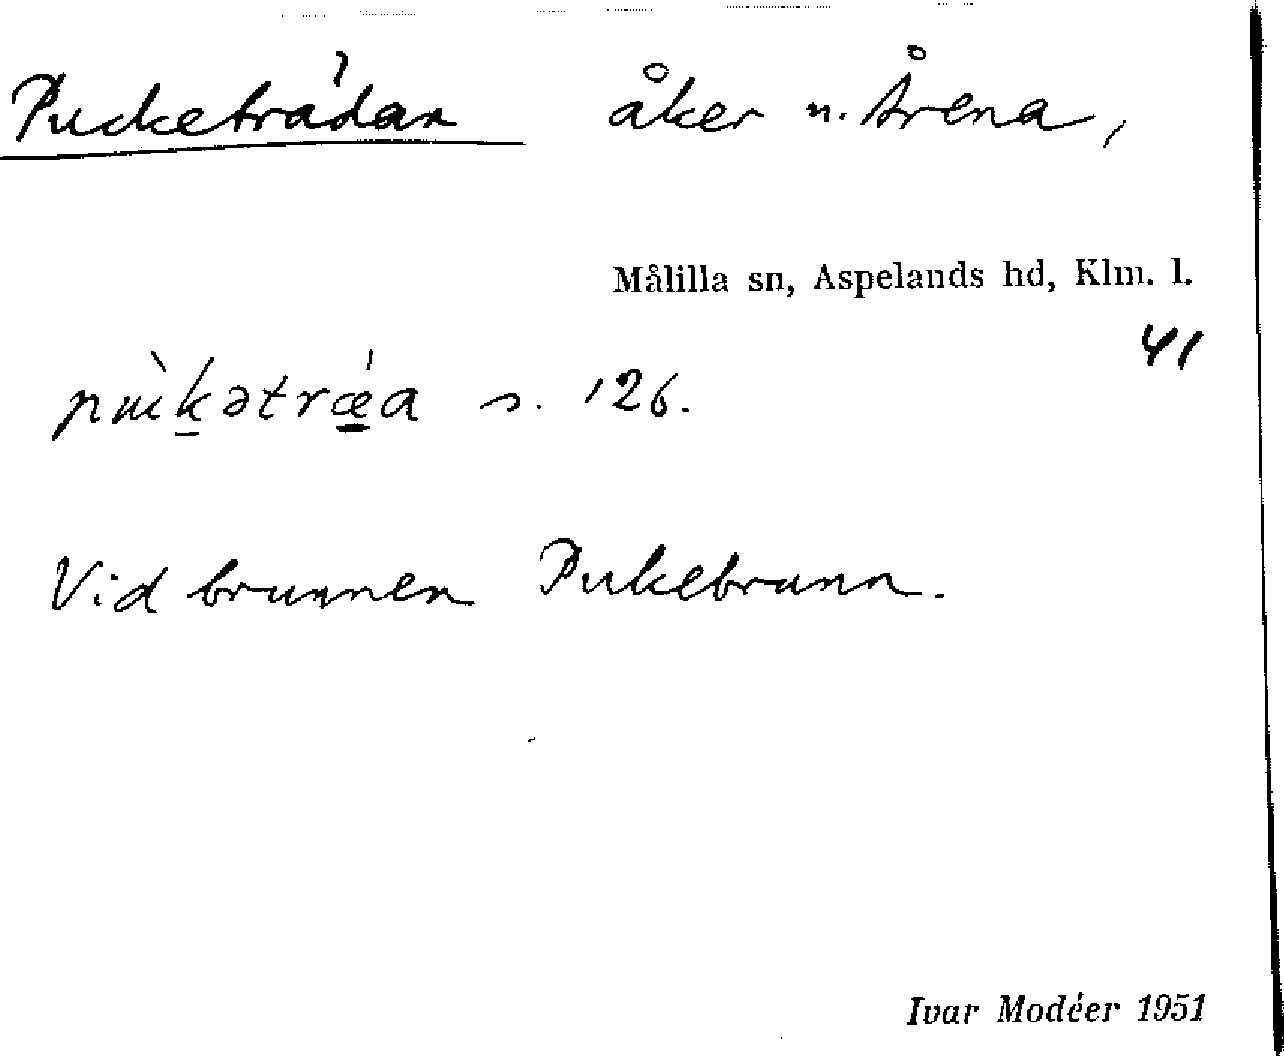 Pucketrådan åker n. Årena,
Målilla sn, Aspelands hd, Klm. l.
41
s. 126.
Vid brunnen Pukebrunn.
Ivar Modéer 1951